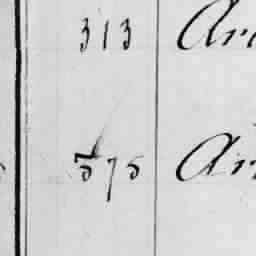 313 Ar
575 Ar